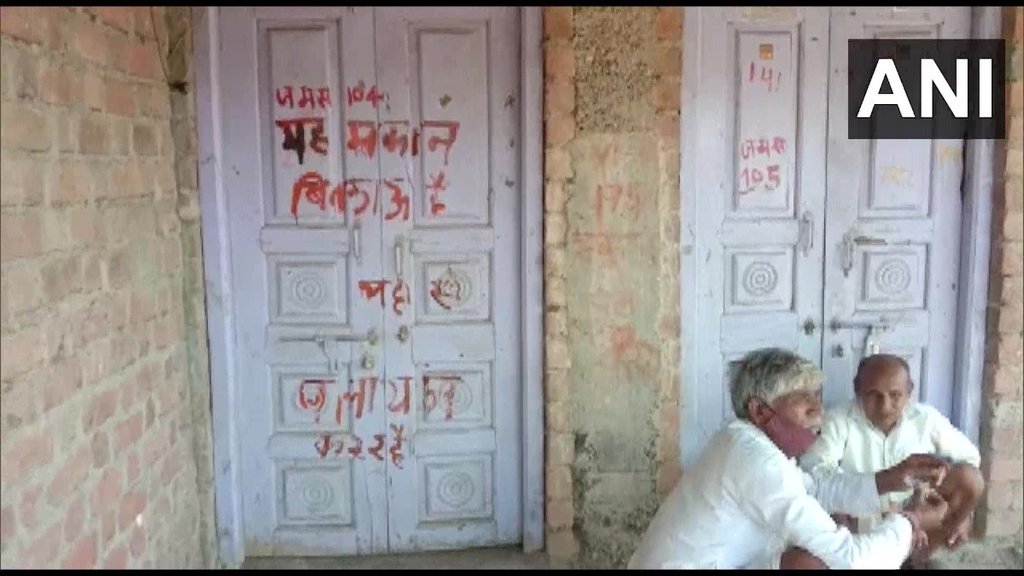 जमस 104
यह मकान
बिकाऊ है
यहा से
पलायन
कर रहे है
141
जमस
105
175
ANI